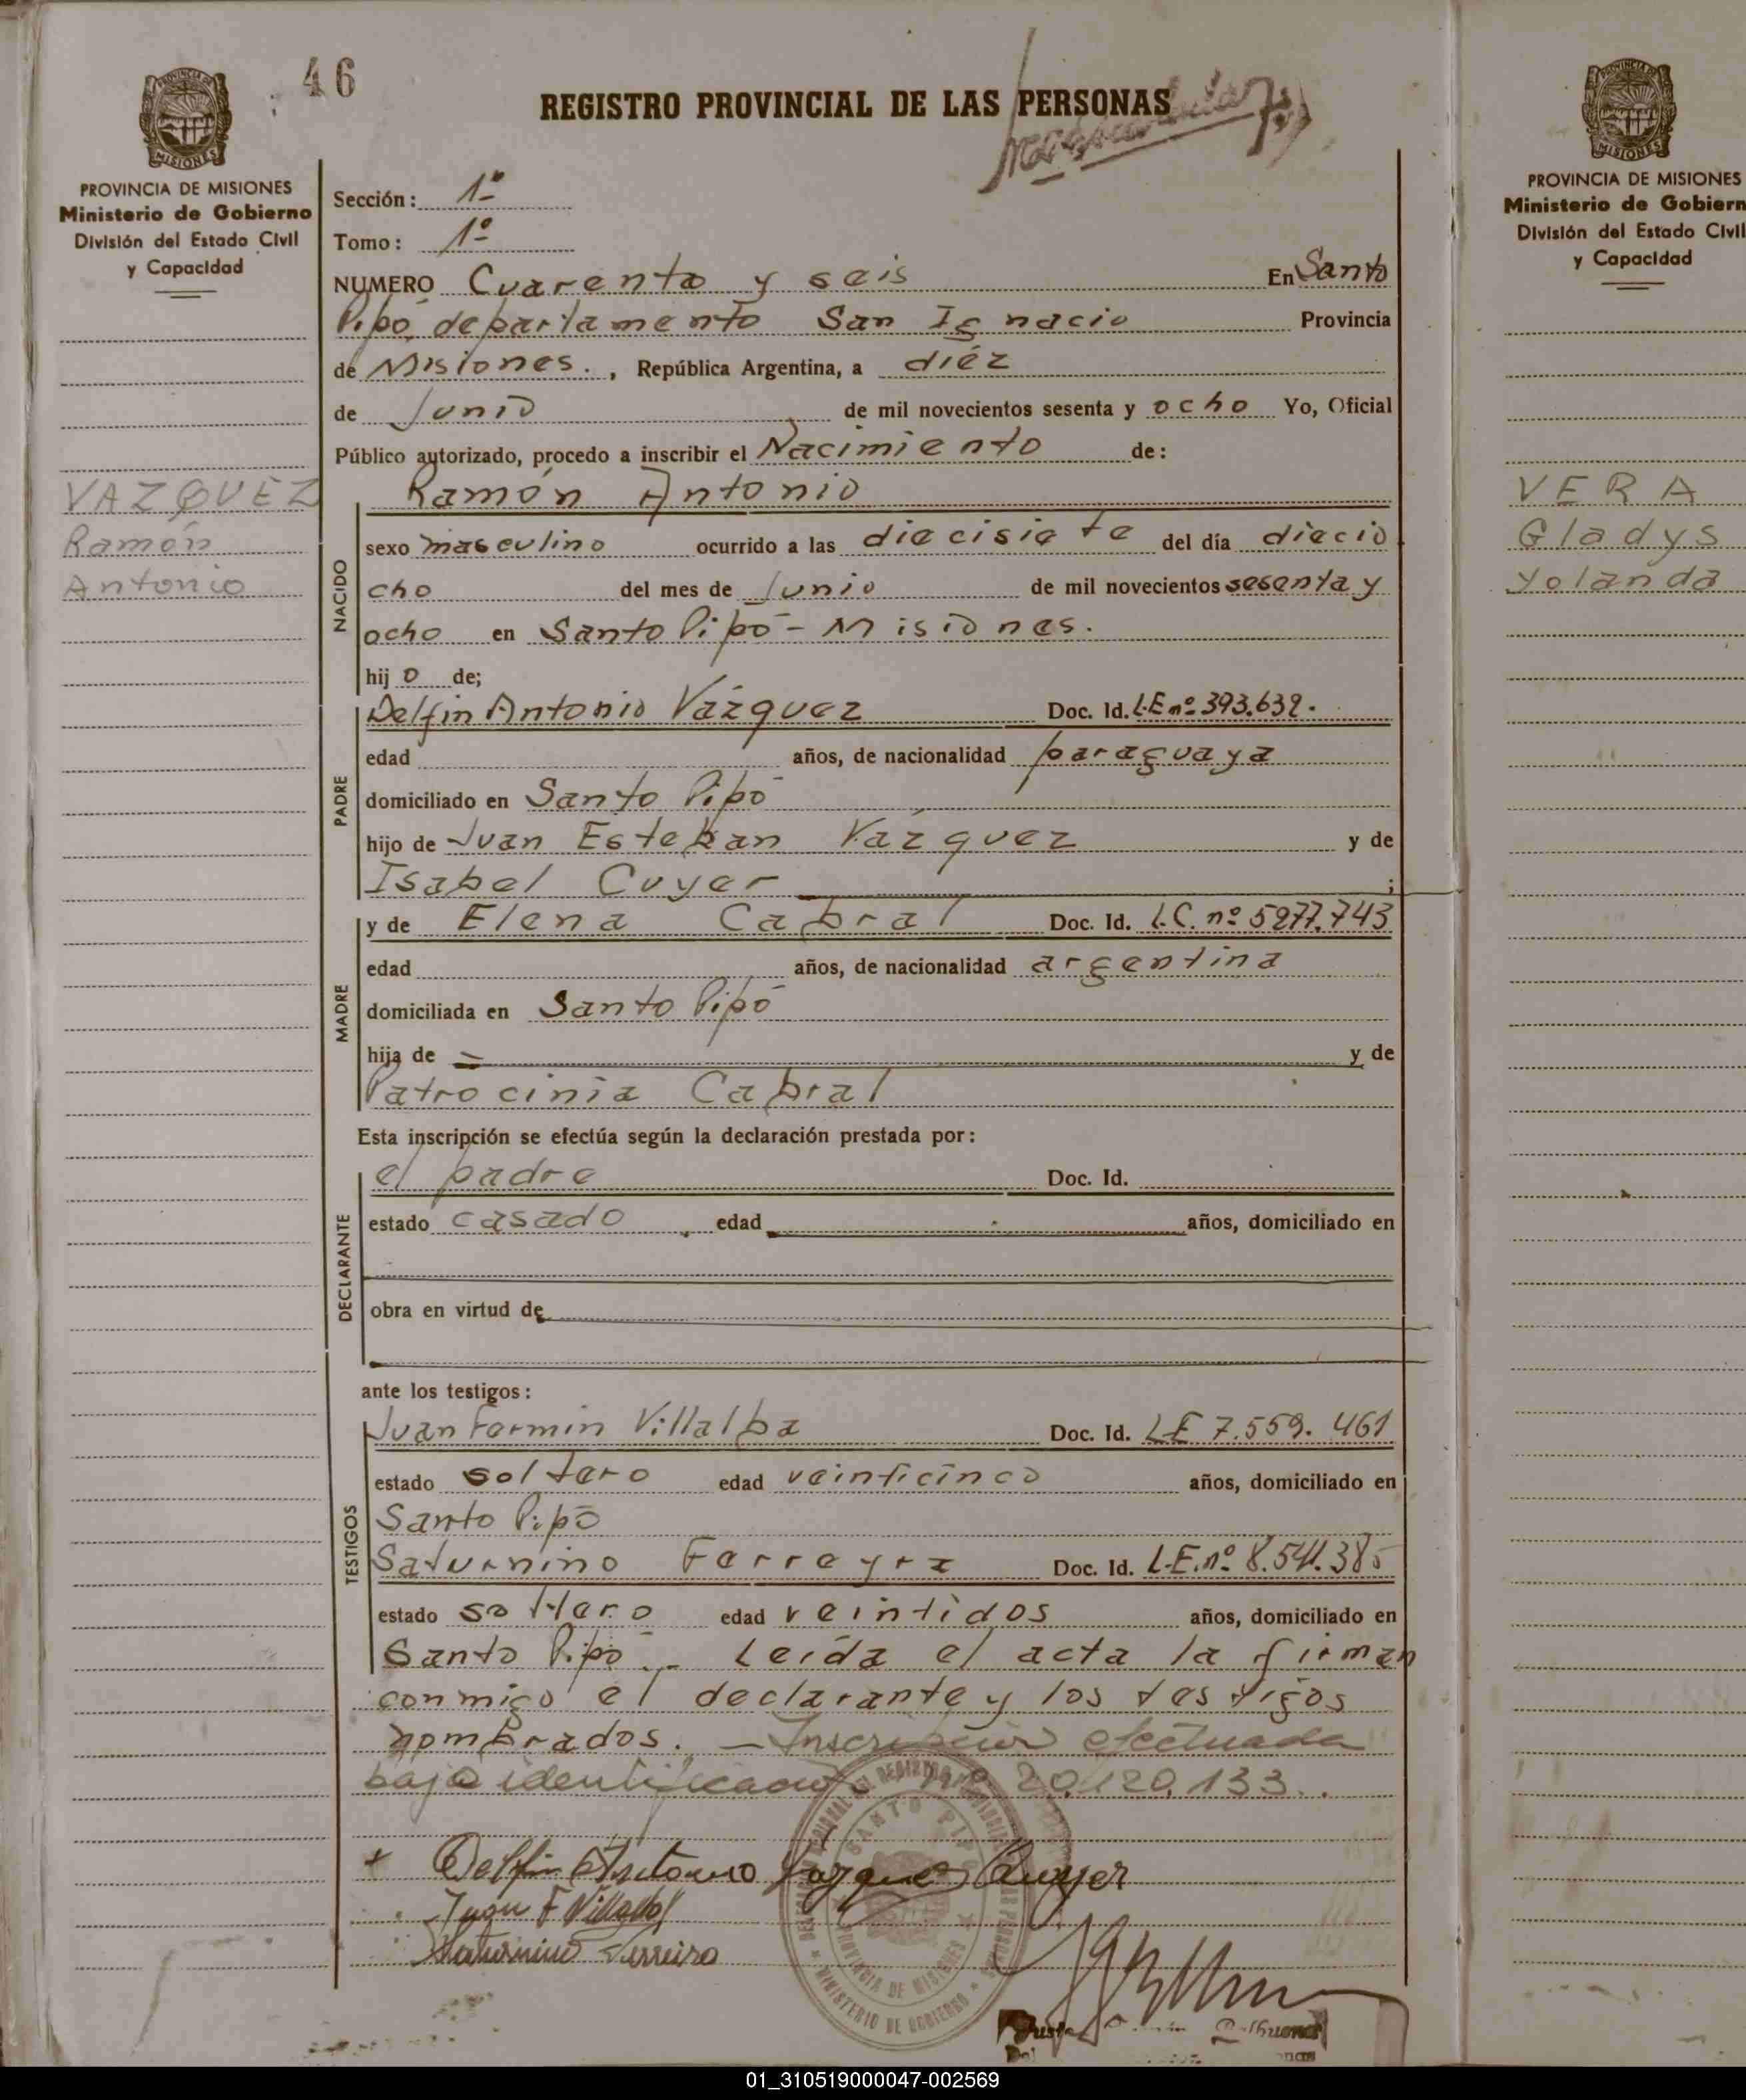 46
REGISTRO PROVINCIAL DE LAS PERSONAS
PROVINCIA DE MISIONES
Ministerio de Gobierno
División del Estado Civil
y Capacidad
VAZQUEZ
Ramón
Antonio
Sección: 1º
Tomo: 1º
NUMERO Cuarenta y seis En Santo
Pipó departamento San Ignacio Provincia
de Misiones. , República Argentina, a diéz
de Junio de mil novecientos sesenta y ocho Yo, Oficial
Público autorizado, procedo a inscribir el Nacimiento de:
Ramón Antonio
NACIDO
sexo masculino ocurrido a las diecisiete del día diecio
cho del mes de Junio de mil novecientos sesenta y
ocho en Santo Pipó - Misiones.
hij o de;
PADRE
Delfin Antonio Vázquez Doc. Id. L.E nº 393.639.
edad años, de nacionalidad paraguaya
domiciliado en Santo Pipó
hijo de Juan Esteban Vázquez y de
Isabel Cuyer ;
MADRE
y de Elena Cabral Doc. Id. L.C. nº 5977.743
edad años, de nacionalidad argentina
domiciliada en Santo Pipó
hija de = y de
Patrocinia Cabral
Esta inscripción se efectúa según la declaración prestada por:
DECLARANTE
el padre Doc. Id.
estado casado edad años, domiciliado en
obra en virtud de
ante los testigos:
TESTIGOS
Juan Fermin Villalba Doc. Id. LE 7.559. 461
estado soltero edad veinticinco años, domiciliado en
Santo Pipó
Saturnino Ferreyra Doc. Id. L.E. nº 8.541.385
estado soltero edad veintidos años, domiciliado en
Santo Pipó.- Leída el acta la firman
conmigo el declarante y los testigos
nombrados. — Inscripción efectuada
bajo identificación nº 20.120.133.
+ Delfin Antonio Vázquez Cuyer
Juan F Villalba
Saturnino Ferreira
SANTO PIPO
PROVINCIA DE MISIONES
MINISTERIO DE GOBIERNO
PROVINCIA DE MISIONES
Ministerio de Gobiern
División del Estado Civil
y Capacidad
VERA
Gladys
Yolanda
01_310519000047-002569